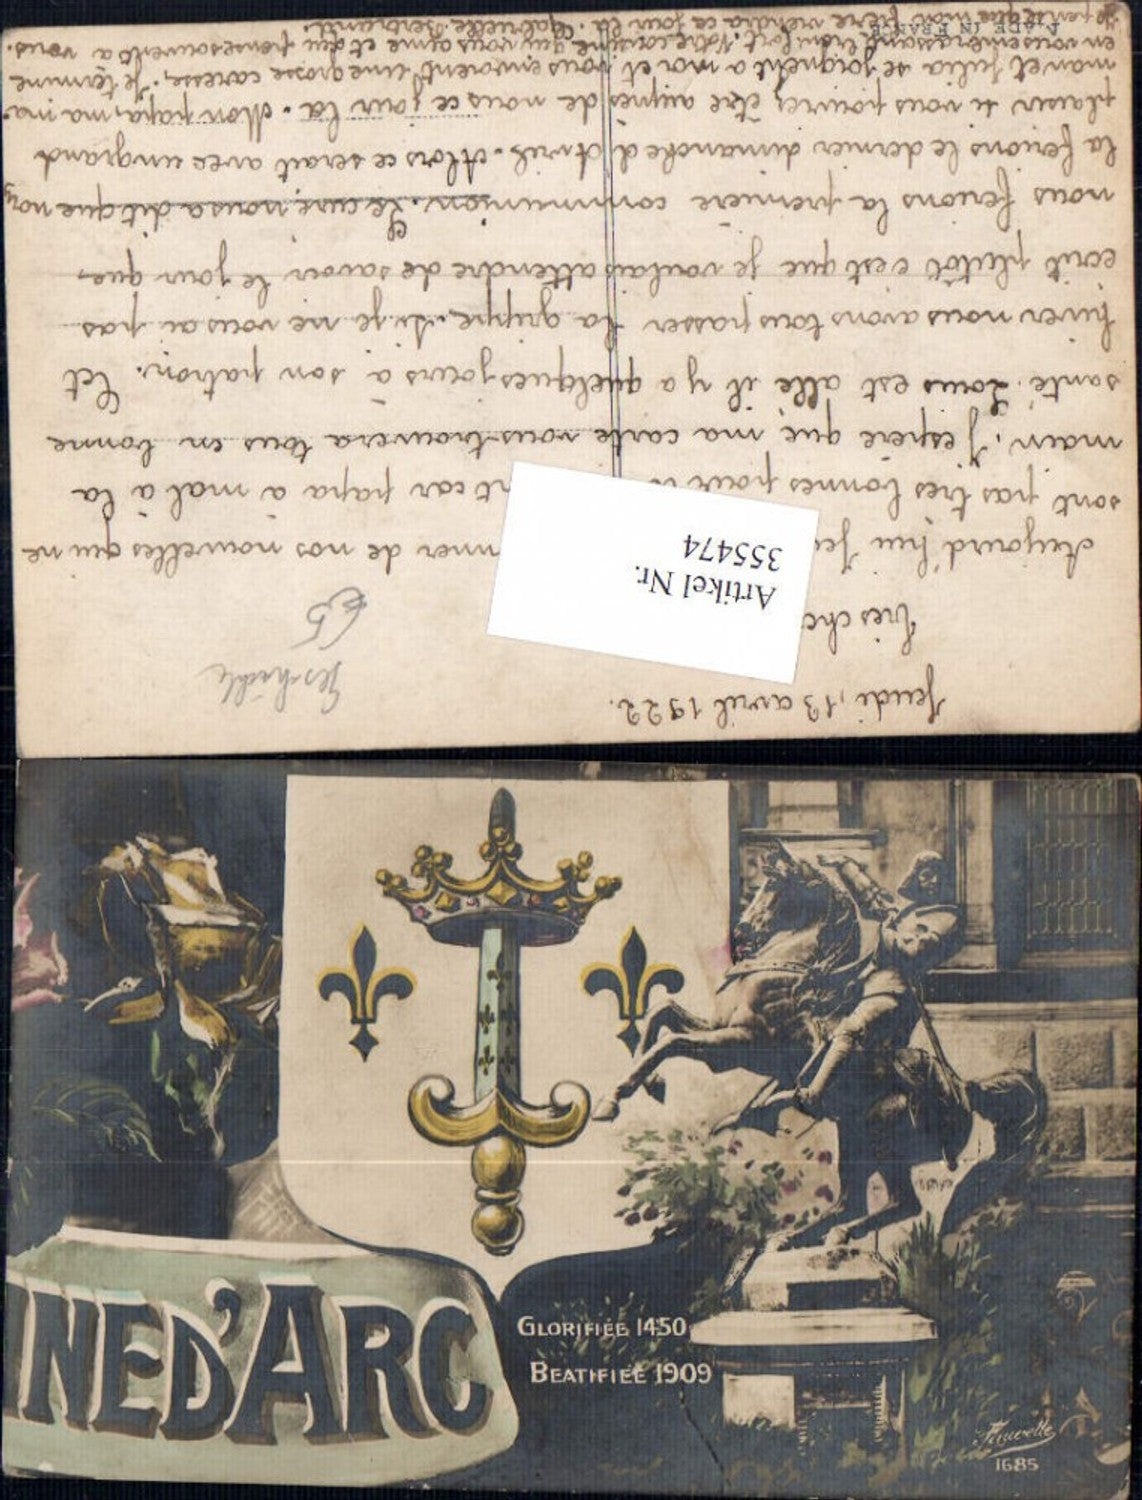 Jeudi, 13 avril 1922.
Très
Aujourd'hui de nos nouvelles qui ne
sont pas très bonnes car papa a mal à la
main. J'espère que ma carte vous trouvera tous en bonne
santé. Louis est allé il y a quelques jours à son patron. Cet
hiver nous avons tous passer la grippe. Si je ne vous ai pas
écrit plutôt c'est que je voulais attendre de savoir le jour que
nous ferions la première communion. Le curé nous a dit que nous
la ferions le dernier dimanche d'Avril. Alors ce serait avec un grand
plaisir si vous pourriez être auprès de nous ce jour là. Mon papa, ma ma-
man et Julia se joignent a moi et vous envoient une grosse caresse. Je termine
en vous embrassant bien fort. Votre cousine qui vous aime et qui pense souvent à vous.
MADE IN FRANCE
€5
Artikel Nr.
355474
NE D'ARC
GLORIFIÉE 1450
BEATIFIÉE 1909
Fauvette
1685